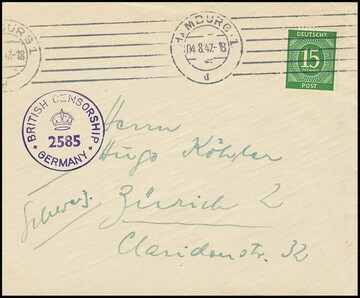 BURG 1
47-18
HAMBURG 1
04.8.47-18
d
DEUTSCHE
15
PFENNIG
POST
BRITISH CENSORSHIP
2585
GERMANY
Herrn
Hugo Köhler
Schweiz.
Zürich 2
Claridenstr. 32